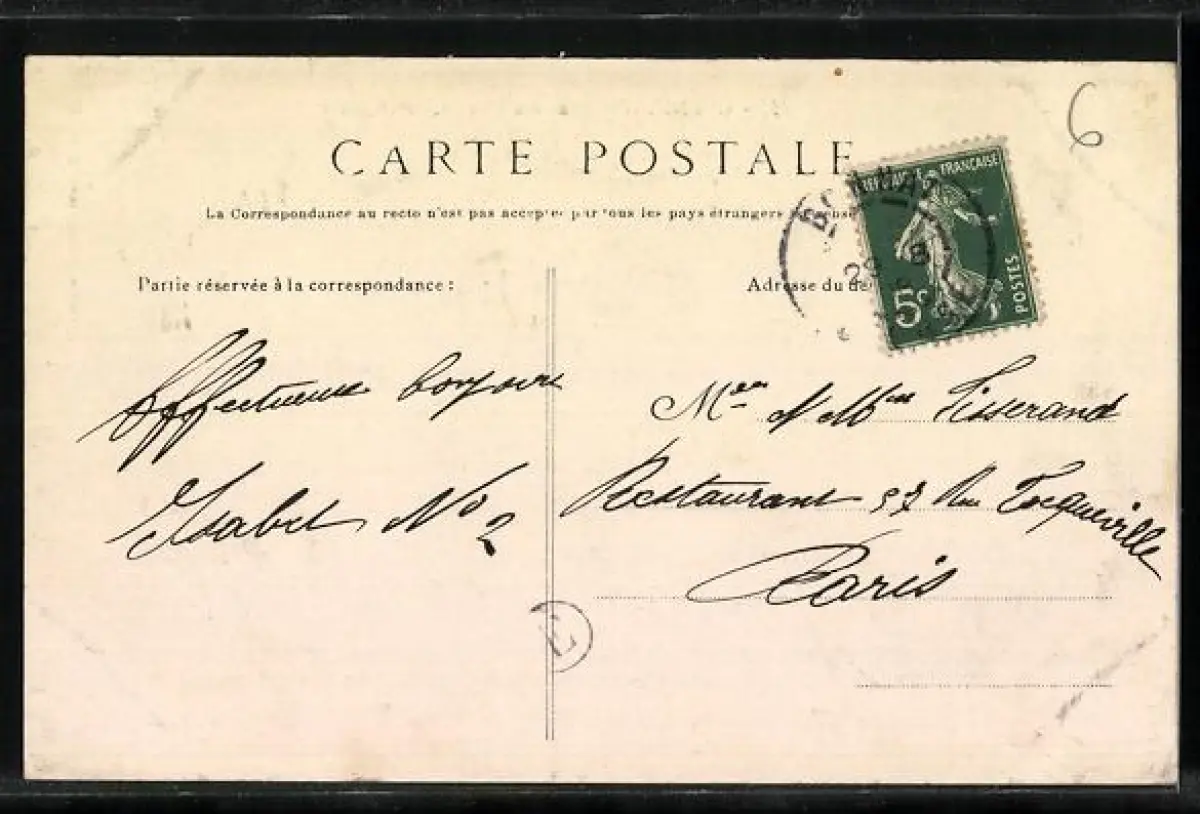 6
CARTE POSTALE
La Correspondance au recto n'est pas acceptée par tous les pays étrangers
REPUBLIQUE FRANÇAISE
POSTES
5c
Partie réservée à la correspondance :
Adresse du
Affectueux bonjour
Isabel No 2
Mr & Mme Tisserand
Restaurant 57 Rue Tocqueville
Paris
E